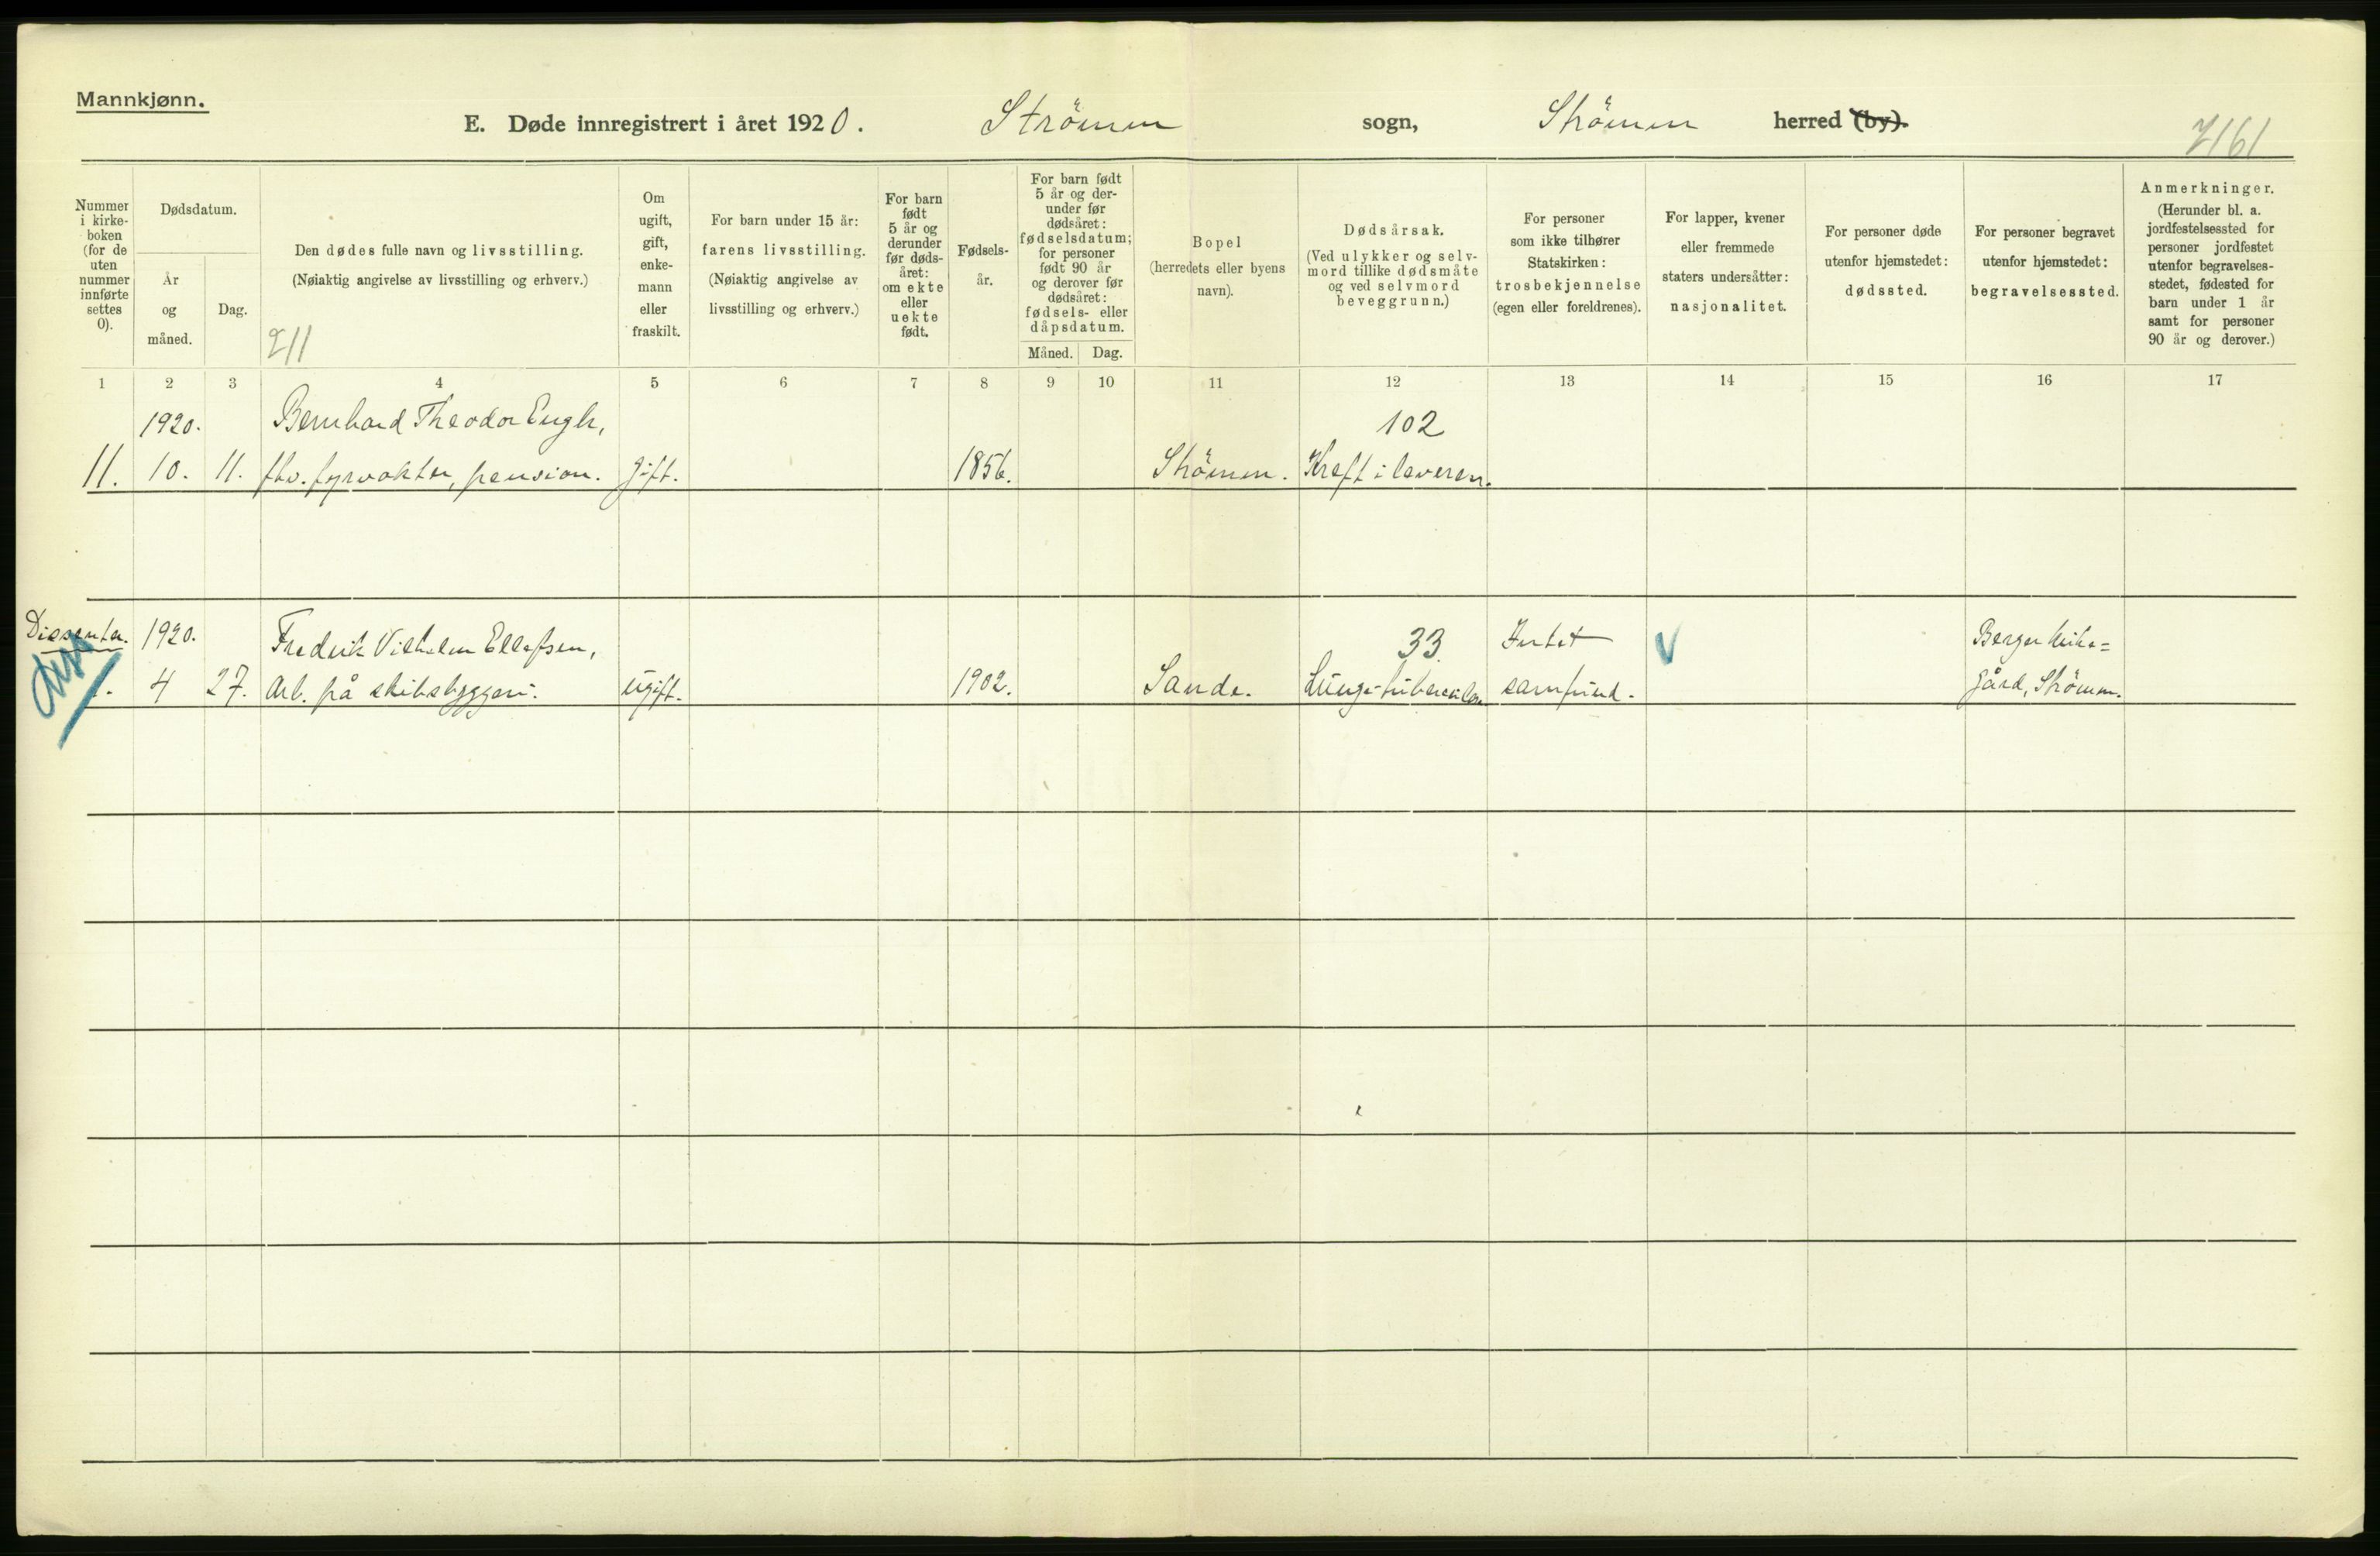 Mannkjønn.
E. Døde innregistrert i året 1920. Strömm sogn, Strömm herred (by).
2161
Nummer i kirkeboken (for de uten nummer innførte settes 0).
Dødsdatum.
År og måned.
Dag.
Den dødes fulle navn og livsstilling.
(Nøiaktig angivelse av livsstilling og erhverv.)
211
Om ugift, gift, enkemann eller fraskilt.
For barn under 15 år:
farens livsstilling.
(Nøiaktig angivelse av livsstilling og erhverv.)
For barn født 5 år og derunder før dødsåret: om ekte eller uekte født.
Fødselsår.
For barn født 5 år og derunder før dødsåret: fødselsdatum; for personer født 90 år og derover før dødsåret: fødsels- eller dåpsdatum.
Måned. Dag.
Bopel
(herredets eller byens navn).
Dødsårsak.
(Ved ulykker og selvmord tillike dødsmåte og ved selvmord beveggrunn.)
For personer som ikke tilhører Statskirken: trosbekjennelse (egen eller foreldrenes).
For lapper, kvener eller fremmede staters undersåtter: nasjonalitet.
For personer døde utenfor hjemstedet: dødssted.
For personer begravet utenfor hjemstedet: begravelsessted.
Anmerkninger.
(Herunder bl. a. jordfestelsessted for personer jordfestet utenfor begravelsesstedet, fødested for barn under 1 år samt for personer 90 år og derover.)
1 2 3 4 5 6 7 8 9 10 11 12 13 14 15 16 17
1920. Bernhard Theodor Engh, 102
11. 10. 11. fhv. fyrvokter, pension. Gift. 1856. Strömm. Kreft i leveren.
Dissenter. 1920. Fredrik Vilhelm Ellefsen, 33. Intet V Berger kirke=
4 27. Arb. på skibsbyggeri. Ugift. 1902. Sande. Lunge-tuberculose samfund. gård, Strömm.